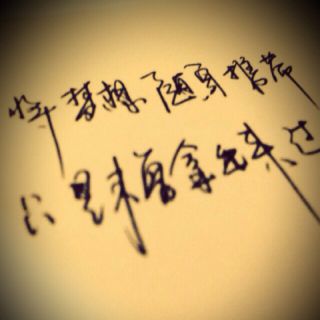 将梦想随身携带
只是未曾拿出来过